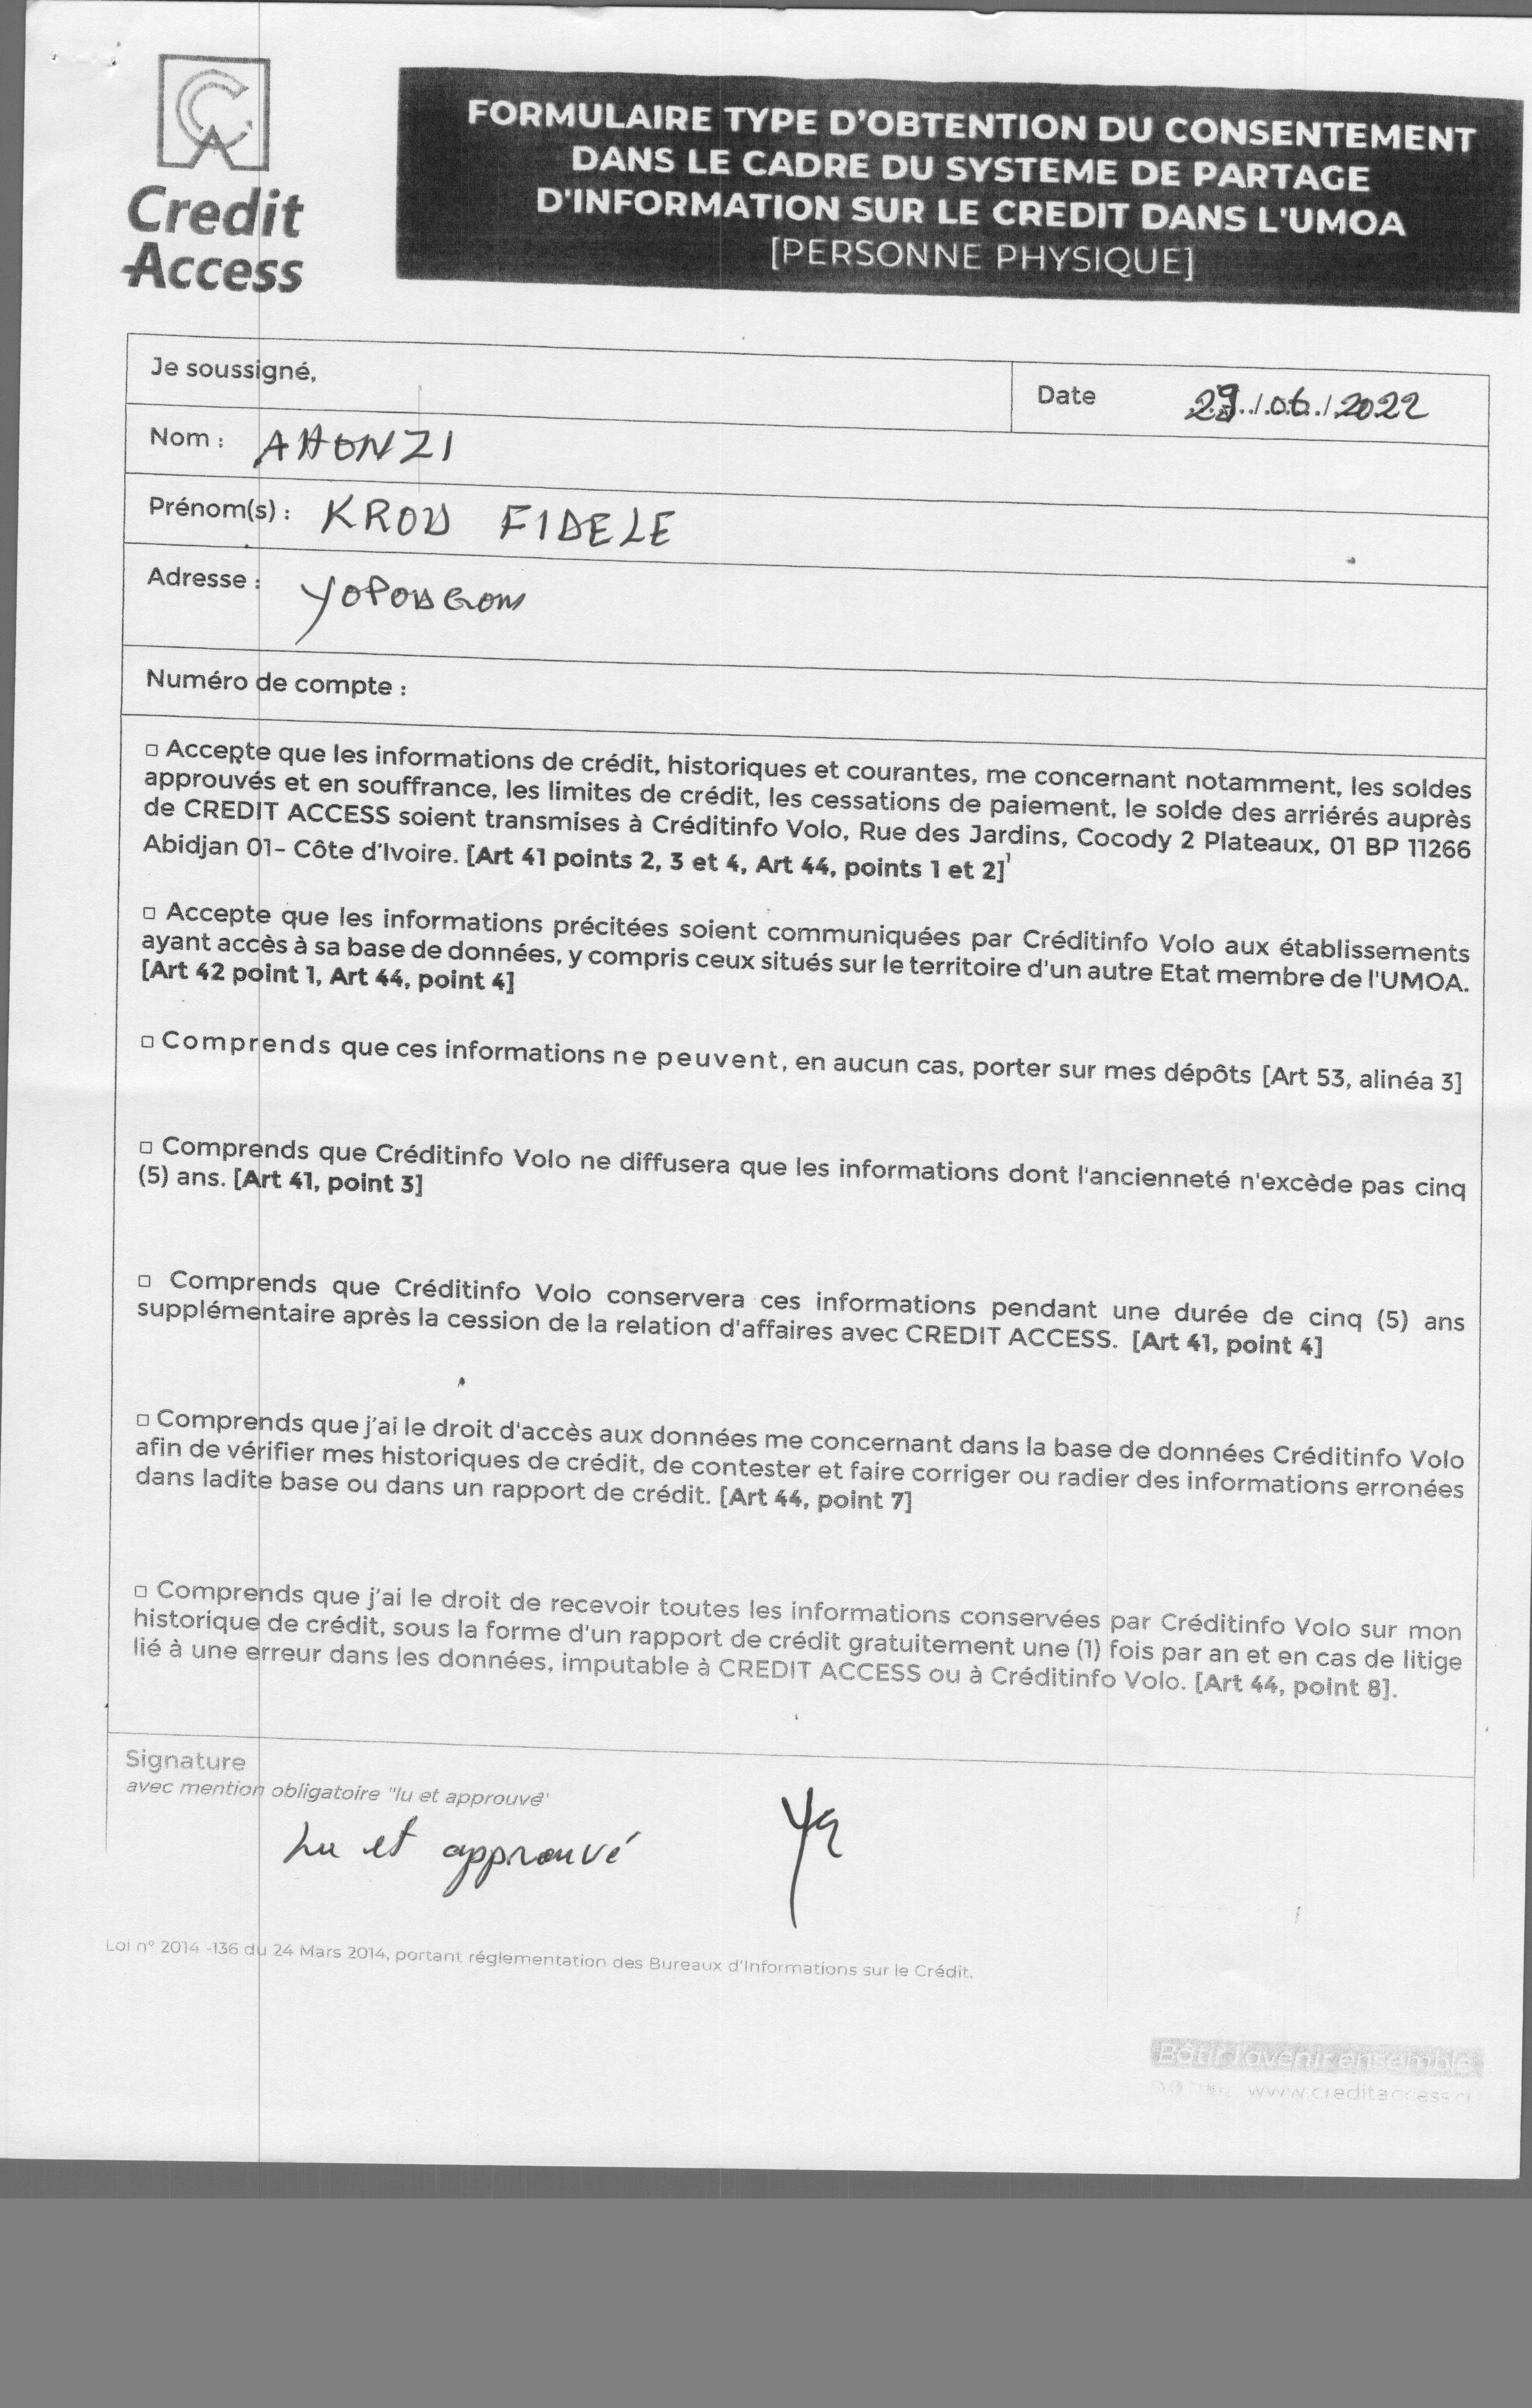 Credit
Access
FORMULAIRE TYPE D'OBTENTION DU CONSENTEMENT
DANS LE CADRE DU SYSTEME DE PARTAGE
D'INFORMATION SUR LE CREDIT DANS L'UMOA
[PERSONNE PHYSIQUE]
Je soussigné,
Date 29/06/2022
Nom : AHONZI
Prénom(s) : FIDELE
Adresse :
Numéro de compte :
□ Accepte que les informations de crédit, historiques et courantes, me concernant notamment, les soldes
approuvés et en souffrance, les limites de crédit, les cessations de paiement, le solde des arriérés auprès
de CREDIT ACCESS soient transmises à Créditinfo Volo, Rue des Jardins, Cocody 2 Plateaux, 01 BP 11266
Abidjan 01- Côte d'Ivoire. [Art 41 points 2, 3 et 4, Art 44, points 1 et 2]¹
□ Accepte que les informations précitées soient communiquées par Créditinfo Volo aux établissements
ayant accès à sa base de données, y compris ceux situés sur le territoire d'un autre Etat membre de l'UMOA.
[Art 42 point 1, Art 44, point 4]
□ Comprends que ces informations ne peuvent, en aucun cas, porter sur mes dépôts [Art 53, alinéa 3]
□ Comprends que Créditinfo Volo ne diffusera que les informations dont l'ancienneté n'excède pas cinq
(5) ans. [Art 41, point 3]
□ Comprends que Créditinfo Volo conservera ces informations pendant une durée de cinq (5) ans
supplémentaire après la cession de la relation d'affaires avec CREDIT ACCESS. [Art 41, point 4]
□ Comprends que j'ai le droit d'accès aux données me concernant dans la base de données Créditinfo Volo
afin de vérifier mes historiques de crédit, de contester et faire corriger ou radier des informations erronées
dans ladite base ou dans un rapport de crédit. [Art 44, point 7]
□ Comprends que j'ai le droit de recevoir toutes les informations conservées par Créditinfo Volo sur mon
historique de crédit, sous la forme d'un rapport de crédit gratuitement une (1) fois par an et en cas de litige
lié à une erreur dans les données, imputable à CREDIT ACCESS ou à Créditinfo Volo. [Art 44, point 8].
Signature
avec mention obligatoire "lu et approuvé"
Lu et approuvé
Loi n° 2014 -136 du 24 Mars 2014, portant réglementation des Bureaux d'Informations sur le Crédit.
Bâtir l'avenir ensemble
www.creditaccess.ci